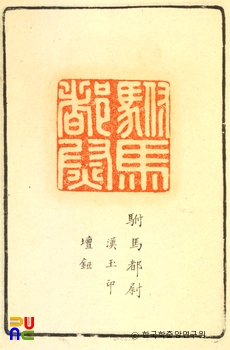 駙馬都尉
駙馬都尉
漢玉印
壇鈕
PUAC
© 한국학중앙연구원